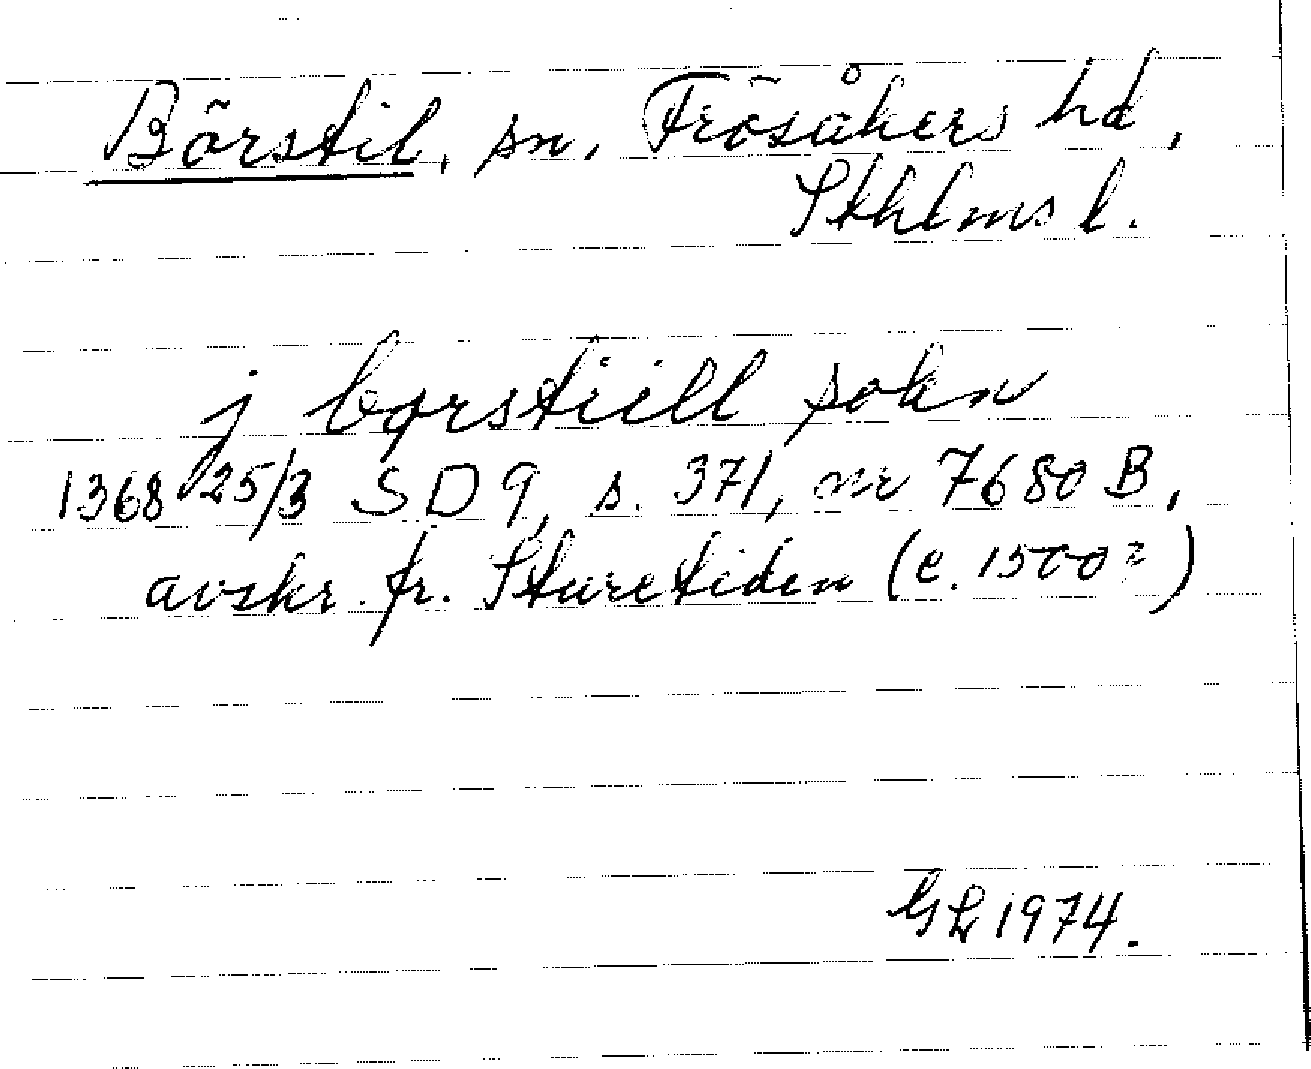 Börstil, sn, Frösåkers hd,
Sthlms l.
j børstiill sokn
1368 25/3 SD 9, s. 371, nr 7680 B,
avskr. fr. Sturetiden (c. 1500?)
GL 1974.